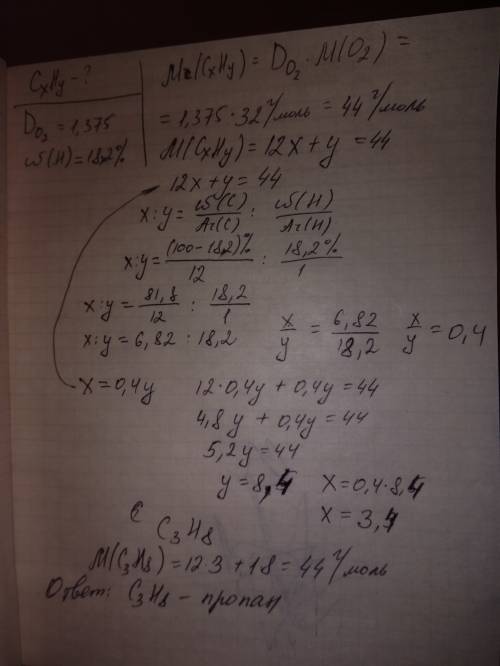 CxHy - ?
D O2 = 1,375
ω(H) = 18,2%
Mr(CxHy) = D O2 · M(O2) =
= 1,375 · 32 г/моль = 44 г/моль
M(CxHy) = 12x + y = 44
12x + y = 44
x : y = ω(C)/Ar(C) : ω(H)/Ar(H)
x : y = (100 - 18,2)%/12 : 18,2%/1
x : y = 81,8/12 : 18,2/1
x : y = 6,82 : 18,2
x/y = 6,82/18,2 x/y = 0,4
x = 0,4y
12 · 0,4y + 0,4y = 44
4,8y + 0,4y = 44
5,2y = 44
y = 8,4 x = 0,4 · 8,4
x = 3,4
C C3H8
M(C3H8) = 12 · 3 + 1 8 = 44 г/моль
Ответ: C3H8 - пропан